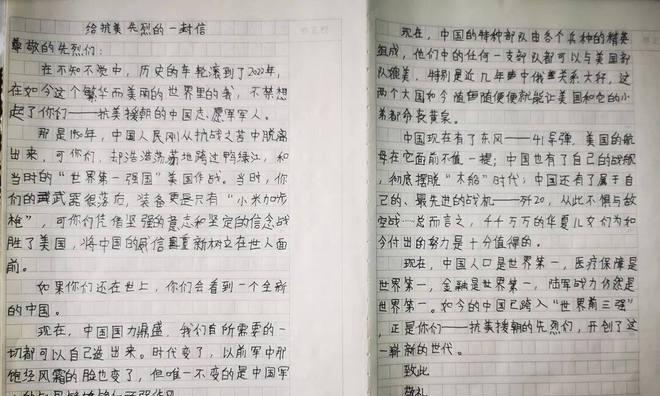 给抗美先烈的一封信
尊敬的先烈们：
在不知不觉中，历史的车轮滚到了2022年，
在如今这个繁华而美丽的世界里的我，不禁想
起了你们——抗美援朝的中国志愿军军人。
那是1950年，中国人民刚从抗战之苦中脱离
出来，可你们，却浩浩荡荡地跨过鸭绿江，和
当时的“世界第一强国”美国作战。当时，你
们的武器很落后，装备更是只有“小米加步
枪”，可你们凭借坚强的意志和坚定的信念战
胜了美国，将中国的威信重新树立在世人面
前。
如果你们还在世上，你们会看到一个全新
的中国。
现在，中国国力鼎盛，我们自所需要的一
切都可以自己造出来。时代变了，以前军中那
饱经风霜的脸也变了，但唯一不变的是中国军
现在，中国的特种部队由各个兵种的精英
组成，他们中的任何一支部队都可以与美国部
队媲美，特别是近几年中俄关系大好，这
两个大国如今随随便便就能让美国和它的小
弟都俞丧黄泉。
中国现在有了东风——41导弹，美国的航
母在它面前不值一提；中国也有了自己的战舰
，彻底摆脱“木船”时代；中国还有了属于自
己的、最先进的战机——歼20，从此不惧与敌
空战…总而言之，千千万万的华夏儿女们为和
今付出的努力是十分值得的。
现在，中国人口是世界第一，医疗保障是
世界第一，金融是世界第一，陆军战力仍然是
世界第一。如今的中国已跨入“世界前三强”
，正是你们——抗美援朝的先烈们，开创了这
一崭新的世代。
致此
敬礼